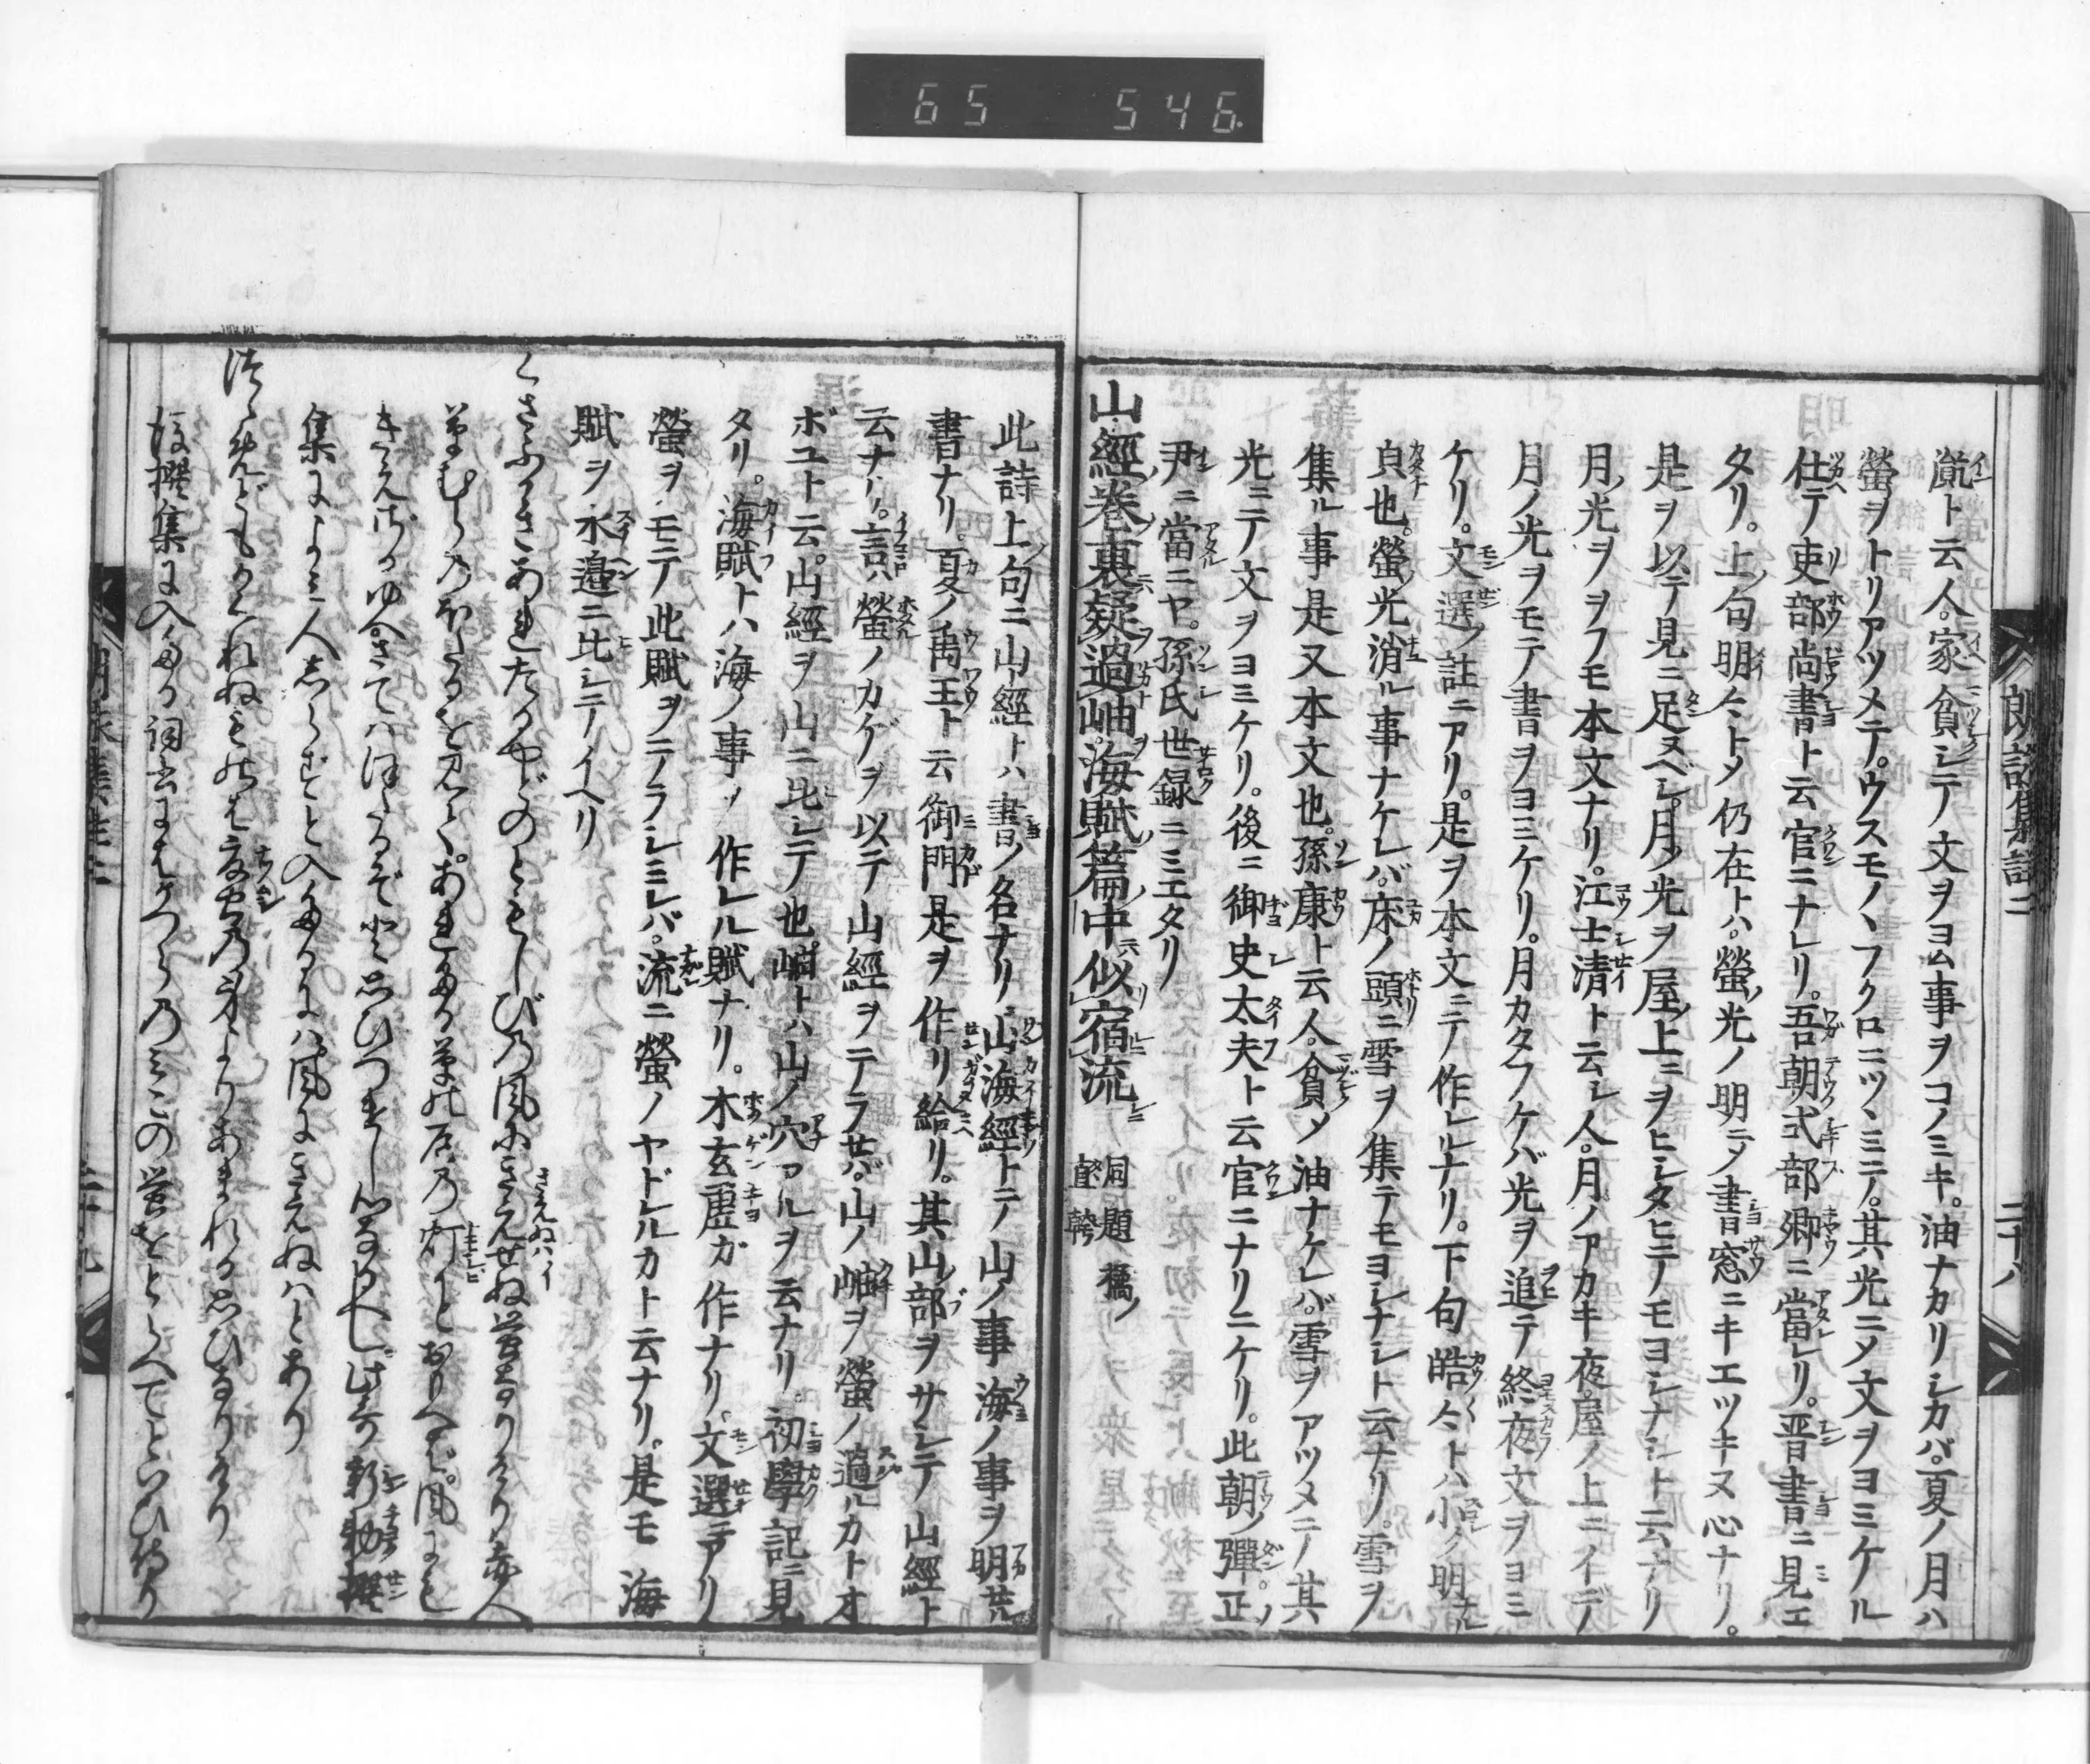 65 546.
胤ト云人。家貧シテ文ヲヨム事ヲコノミキ。油ナカリシカバ。夏ノ月ハ
螢ヲトリアツメテ。ウスモノヽフクロニツヽミテ。其光ニメ文ヲヨミケル
仕テ吏部尚書ト云官ニナレリ。吾朝式部卿ニ當レリ。晋書ニ見エ
タリ。上句明々トメ仍在トハ。螢ノ光ノ明ニメ書窓ニキエツキヌ心ナリ。
是ヲ以テ見ニ足ヌベシ。月ノ光ヲ屋ノ上ニヲヒシタヒテノモヨシナシト云ナリ
月ノ光ヲヲフモ本文ナリ。江士清ト云シ人。月ノアカキ夜。屋ノ上ニイデ
月ノ光ヲモテ書ヲヨミケリ。月カタフケバ光ヲ追テ終夜文ヲヨミ
ケリ。文選ノ註ニアリ。是ヲ本文ニテ作レルナリ。下句皓々トハ小ク明ナル
皃也。螢ノ光消ル事ナケレバ。床ノ頭ニ雪ヲ集テモヨシナシト云ナリ。雪ヲ
集ル事是又本文也。孫康ト云人。貧メ油ナケレバ。雪ヲアツメテ其
光ニテ文ヲヨミケリ。後ニ御史太夫ト云官ニナリニケリ。此朝ノ彈正ノ
尹ニ當ニヤ。孫氏世録ニミエタリ
山經卷裏疑過岫 海賦篇中似宿流 同題 橘ノ直幹
朗詠集註二 二十八
此詩上句ニ山經トハ書ノ名ナリ。山海經トテ山ノ事海ノ事ヲ明セル
書ナリ。夏ノ禹王ト云御門是ヲ作リ給リ。其山ノ部ヲサシテ山經ト
云ナリ。言ハ螢ノカゲヲ以テ山經ヲテラセバ。山ノ岫ヲ螢ノ過ルカトオ
ボユト云。山經ヲ山ニ比シテ也。岫トハ山ノ穴アルヲ云ナリ。初學記ニ見
タリ。海賦トハ海ノ事ヲ作レル賦ナリ。木玄虚ガ作ナリ。文選ニアリ
螢ヲモテ此賦ヲテラシミレバ。流ニ螢ノヤドレルカト云ナリ。是モ海
賦ヲ水邊ニ比シテイヘリ
くさふかきあれたるやどのともしびの風にきえせぬ螢なりけり 赤人
草むらのほたるを見て。あれたる草の庵の灯かとおもへば。風にも
きえざるゆへさてはほたるぞと思ひつるといへる。此哥新勅撰
集によみ人しらずと入たるには風にきえぬはとあり
つゝめどもかくれぬものは夏虫の身よりあまれる思ひなりけり
後撰集に入たる詞書にかつらのみこの螢をとらへてといひ侍り